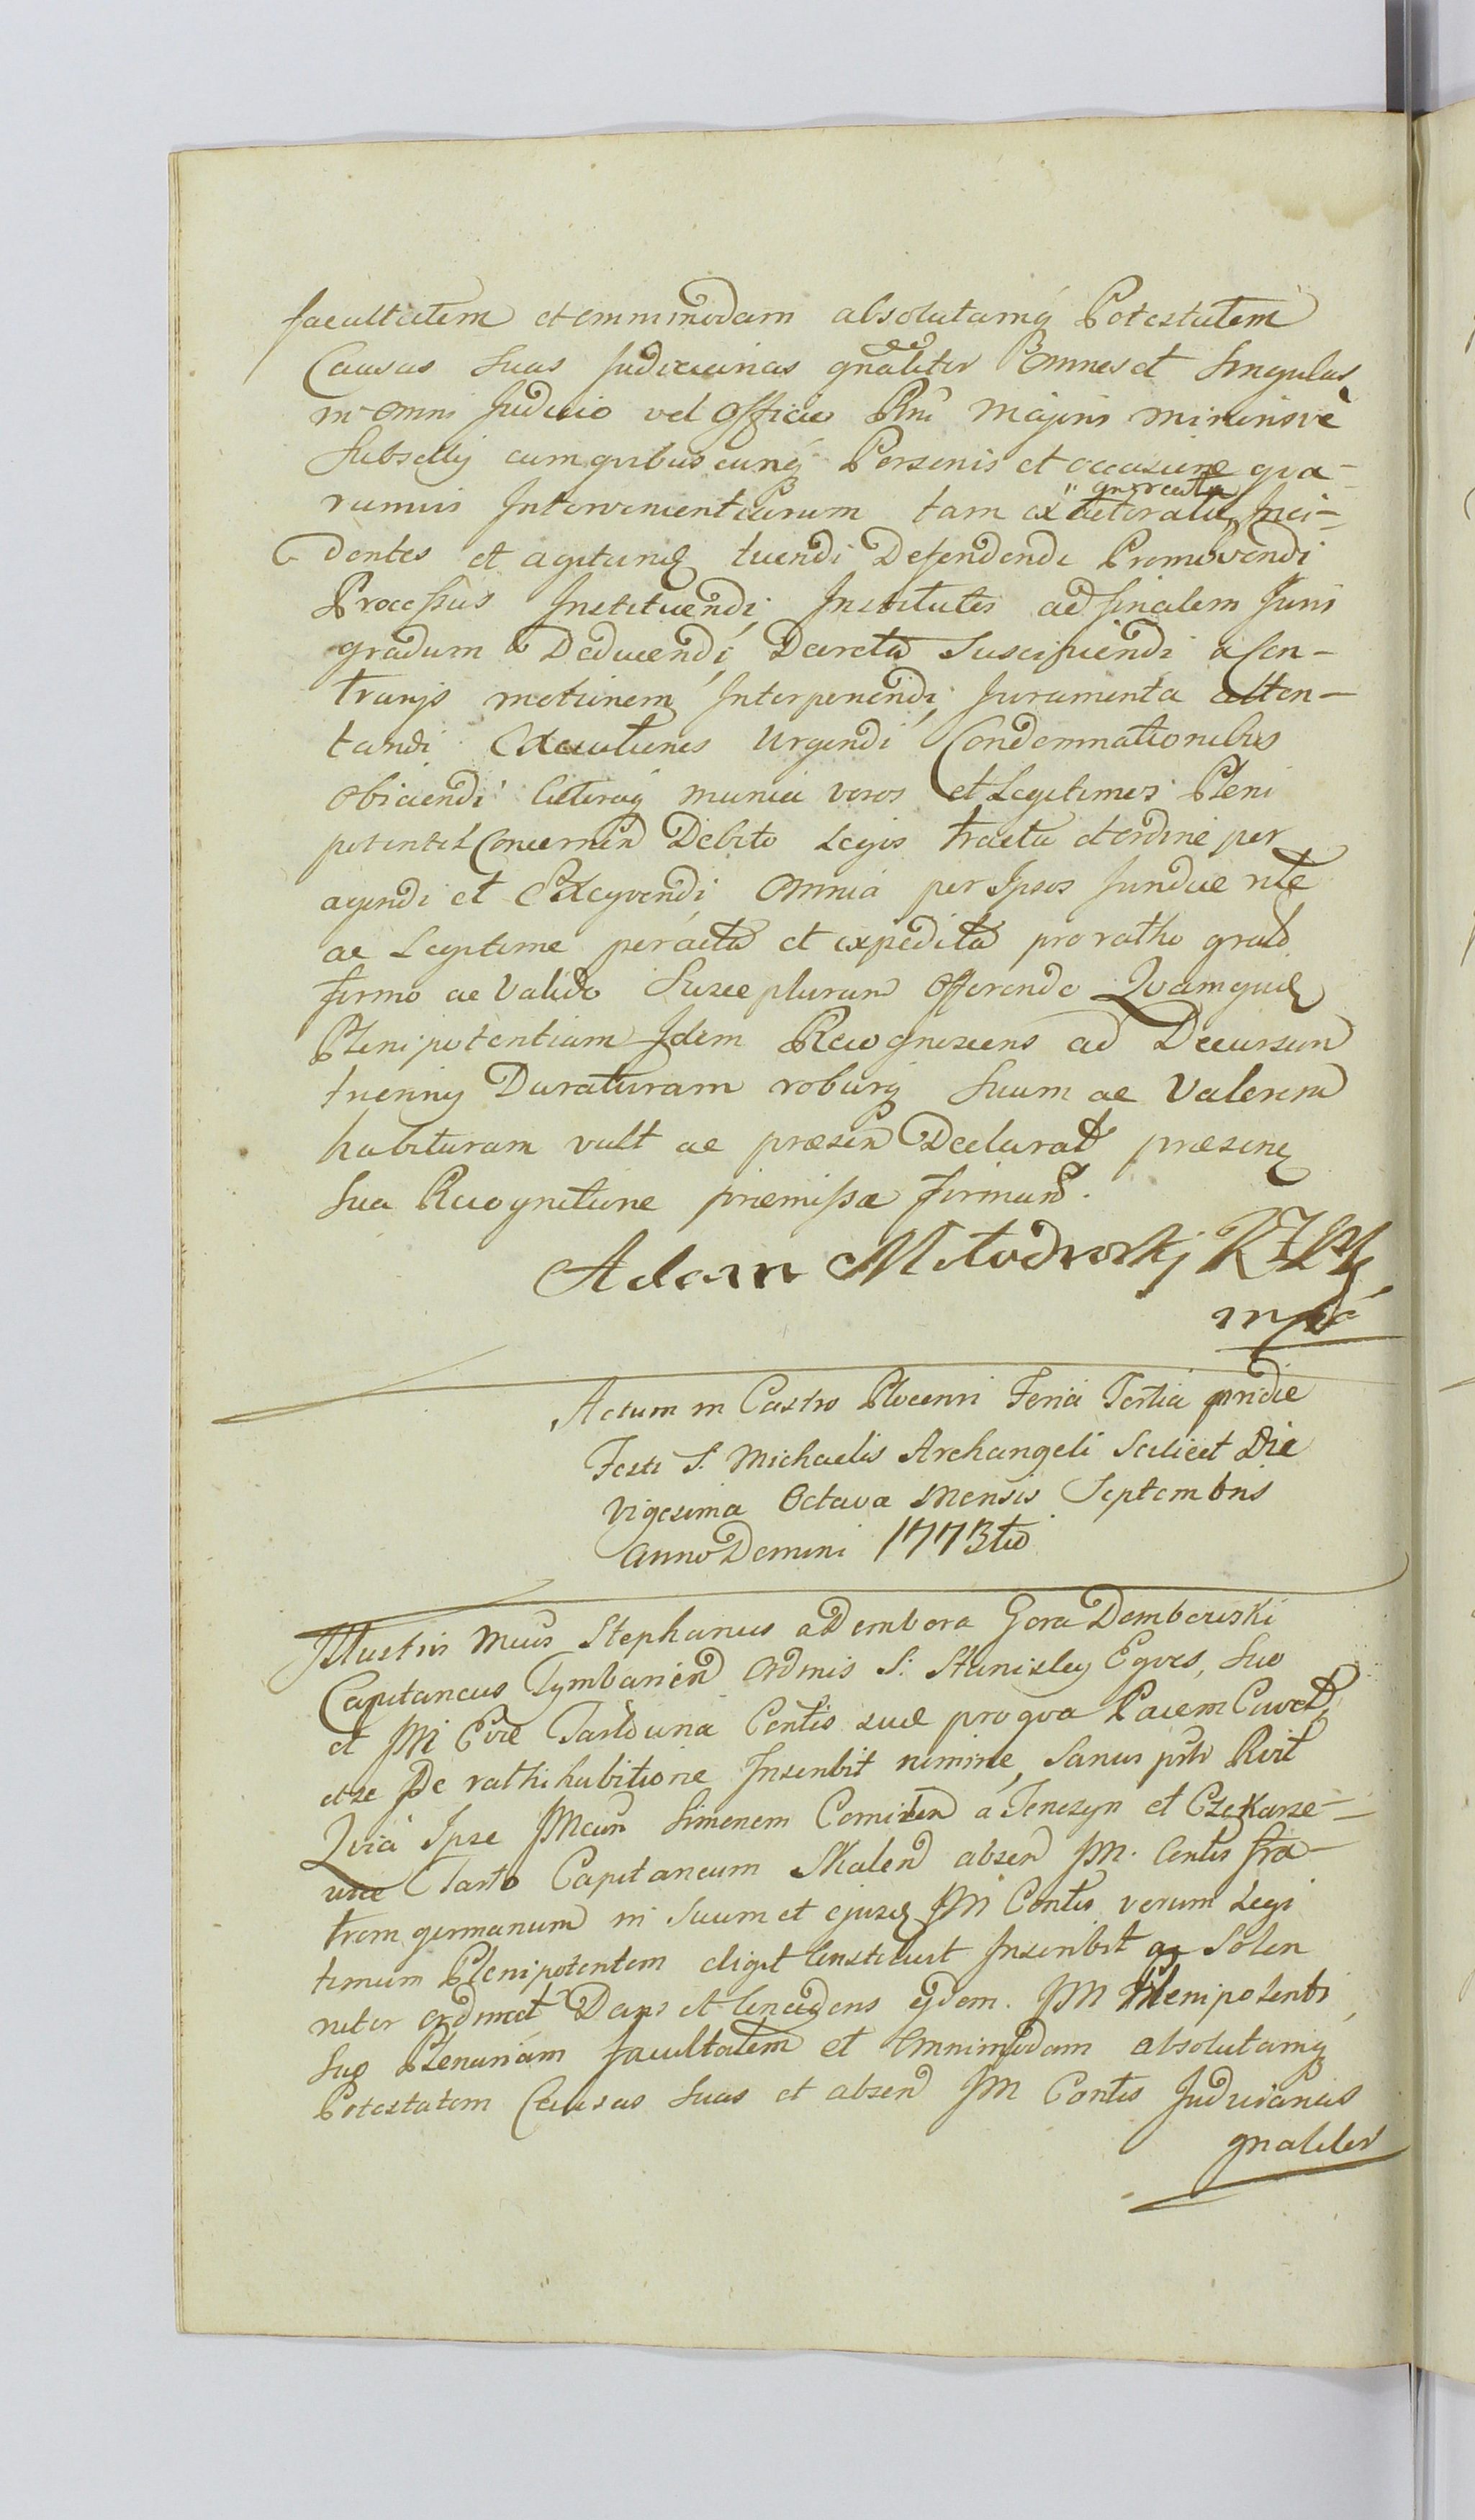 facultatem et omnimodam absolutamq Potestatem
Causas Suas Judiciarias gnaliter Omnes et Singulas
in omni Judicio vel Officio Rni Majoris minorisve
Subsellij cumquibuscunq Personis et occasione qua-
rumvis Intervenientiarum tam ex actoratu, Inci-
dentes et agitand tuendi Defendendi Promovendi
Processus Instituendi, Institutos ad finalem Juris
gradum Deducendi, Decreta Suscipiendi a Con-
trarijs motionem Interponendi, Juramenta atten-
tandi Executiones Urgendi Condemnationibus
Obiciendi Coeteraq munia veros et Legitimos Pleni
potentes Concernen Debito Legis tractu et ordine per
agendi et Exeqvendi, Omnia per Ipsos Jundue rite
ac Legitime peracta et expedita pro ratho grato
firmo ac Valido Susceplurum Offerendo Qvamquid
Plenipotentiam Idem Recognoscens ad Decursum
trienny Duraturam roburq Suum ac Valorem
habituram vult ac praesen Declarat praesenq
Sua Recognitione praemissa firmand.
Adam Młodwski RZM
mpa
Actum in Castro Plocensi Feria Tertia pridie
Festi S. Michaelis Archangeli Scilicet Die
Vigesima Octava Mensis Septembris
Anno Domini 1773tio
Illustris Mcus Stephanus a Dembora Gora Dembowski
Capitaneus Tymbarien Ordinis S. Stanisley Eqves, Suo
et JM Evae Tarłowna Contis suae pro qva Pacem Cavet,
et se De rathihabitione Inscribit nomine, Sanus prtr Rvit
Qvia Ipse JMcum Simonem Comitem a Tenczyn et Czekarze-
wice Tarło Capitaneum Skalen absen JM. Contis fra-
trem germanum in Suum et ejusd JM Contis verum Legi
timum Plenipotentem eligit Constituit Inscribit ac Solen
niter ordinat Dans et Concedens eidem JM Plenipotenti
Suo Plenariam facultatem et Omnimodam absolutamq
Potestatem Causas Suas et absen JM Contis Judiciarias
gnaliter